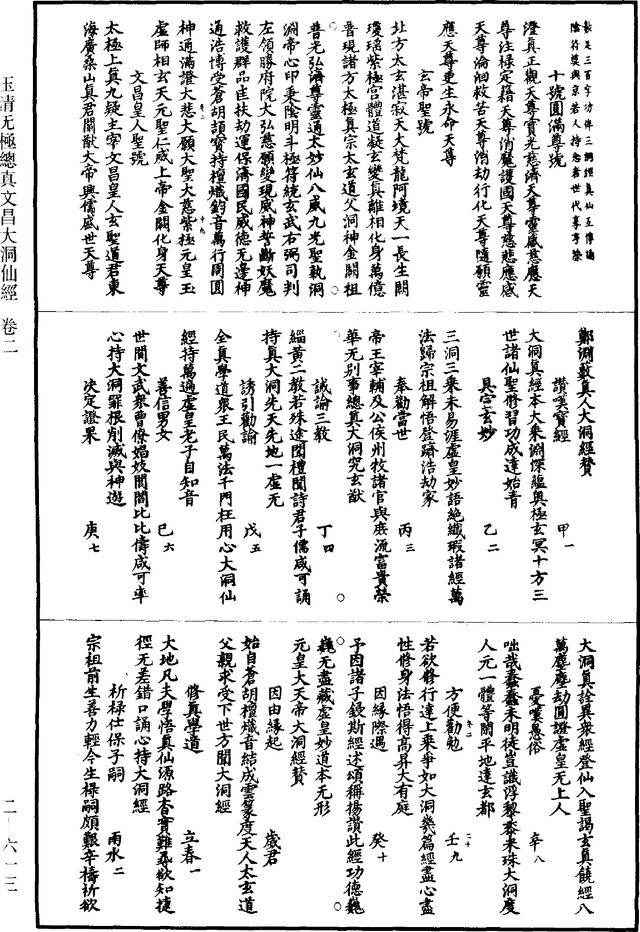 數足三百字功俾三洞經真仙互傳遍
陰符漠與京若人持念者世代享享榮
十號圓滿尊號
澄真正觀天尊寶光慈濟天尊靈感慈應天
尊注祿定籍天尊消魔護國天尊慈悲應感
天尊淪洄救苦天尊消劫行化天尊隨願靈
應天尊更生永命天尊
玄帝聖號
北方太玄湛寂天大梵龍阿境天一長生闕
瓊瑤紫極宮體道凝玄變真離相化身萬億
晉現諸方太極真宗太玄道父洞神金闕祖
普光弘濟尊靈通太妙仙八威九光聖執洞
淵帝心印秉陰明斗極符統玄武右弼司判
左領勝府院大弘慈願變現威神誓斷妖魔
救護群品匡扶劫運保濟國民威德无邊神
通浩博受蒼胡頡寶持檀熾鈞音萬行周圓
神通滿證大悲大願大聖大慈紫極元皇玉
卷二 十九
虛師相玄天元聖仁威上帝金闕化身天尊
文昌皇人聖號
太極上真九疑主宰文昌皇人玄聖道君東
海廣桑山真君闡猷大帝興儒盛世天尊
鄭淵數真人大洞經贊
讚嘆寶經 甲一
大洞真經本大乘淵深蘊奧極玄冥十方三
世諸仙聖修習功成達始青
具空玄妙 乙二
三洞三乘未易涯虛皇妙語絕纖瑕諸經萬
法歸宗祖解悟登躋浩劫家
奉勸當世 丙三
帝王宰輔及公侯州牧諸官與庶流富貴榮
華无別事總真大洞究玄猷
誡諭三教 丁四
緇黃二教若殊途聞禮聞詩君子儒咸可誦
持真大洞先天先地一虛无
誘引勸諭 戊五
全真學道衆王民萬法千門枉用心大洞仙
經持萬遍虛皇老子自知音
善信男女 己六
世間文武衆曹僚娼妓閭閻比比儔咸可率
心持大洞罪根削滅與神遊
決定證果 庚七
大洞真詮異衆經登仙入聖謁玄真饒經八
萬塵塵劫圓證虛皇无上人
憂嘆愚俗 辛八
咄哉蠢蠢未明徒豈識浮黎黍米珠大洞度
人元一體等閑平地達玄都
卷二 二十
方便勸勉 壬九
若欲修行達上乘爭如大洞幾篇經盡心盡
性修身法悟得高昇大有庭
因緣際遇 癸十
予因諸子鋟斯經述頌稱揚讚此經功德巍
巍无盡藏虛皇妙道本无形
元皇大天帝大洞經贊
因由緣起 歲君
始自蒼胡檀熾音結成雲篆度天人太玄道
父親求受下世方聞大洞經
修真學道 立春一
大地凡夫學悟真仙源路杳實難尋欲知捷
徑无差錯口誦心持大洞經
祈祿仕保子嗣 雨水二
宗祖前生善力輕今生祿嗣頗艱辛禱祈欲
玉清无極總真文昌大洞仙經 卷二
二—六一三